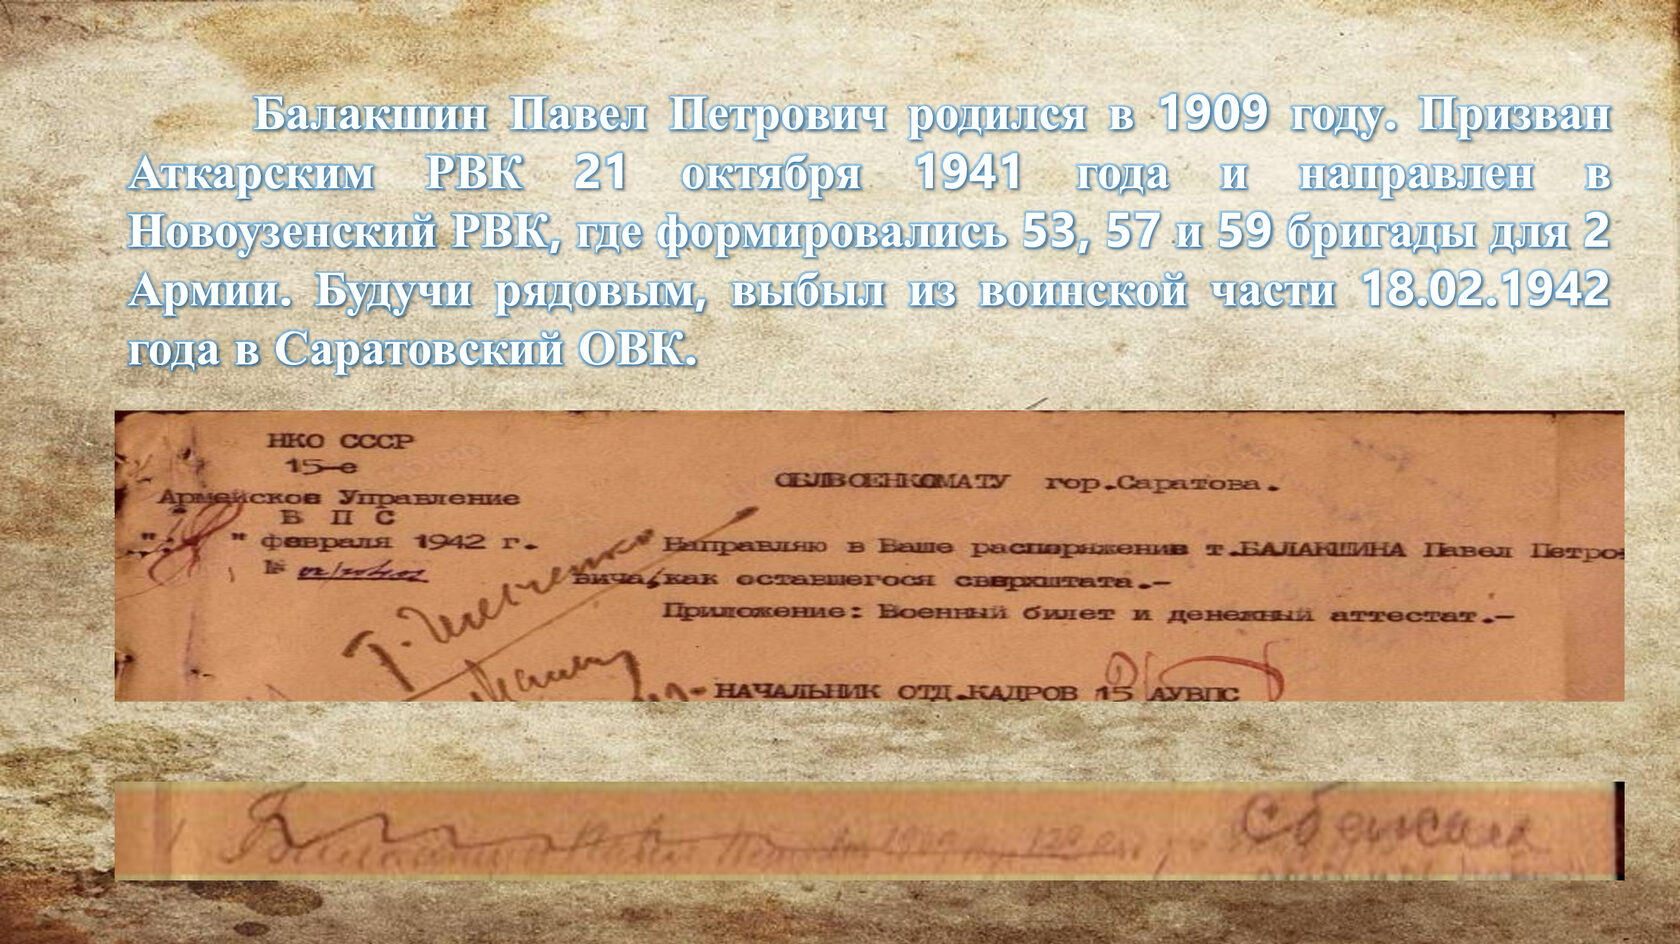 Балакшин Павел Петрович родился в 1909 году. Призван
Аткарским РВК 21 октября 1941 года и направлен в
Новоузенский РВК, где формировались 53, 57 и 59 бригады для 2
Армии. Будучи рядовым, выбыл из воинской части 18.02.1942
года в Саратовский ОВК.
НКО СССР
15-е
Армейское Управление
В П С
" " февраля 1942 г.
№
ОБЛВОЕНКОМАТУ гор.Саратова.
Направляю в Ваше распоряжение т.БАЛАКШИНА Павел Петро-
вича, как оставшегося сверхштата.-
Приложение: Военный билет и денежный аттестат.-
НАЧАЛЬНИК ОТД.КАДРОВ 15 АУВПС